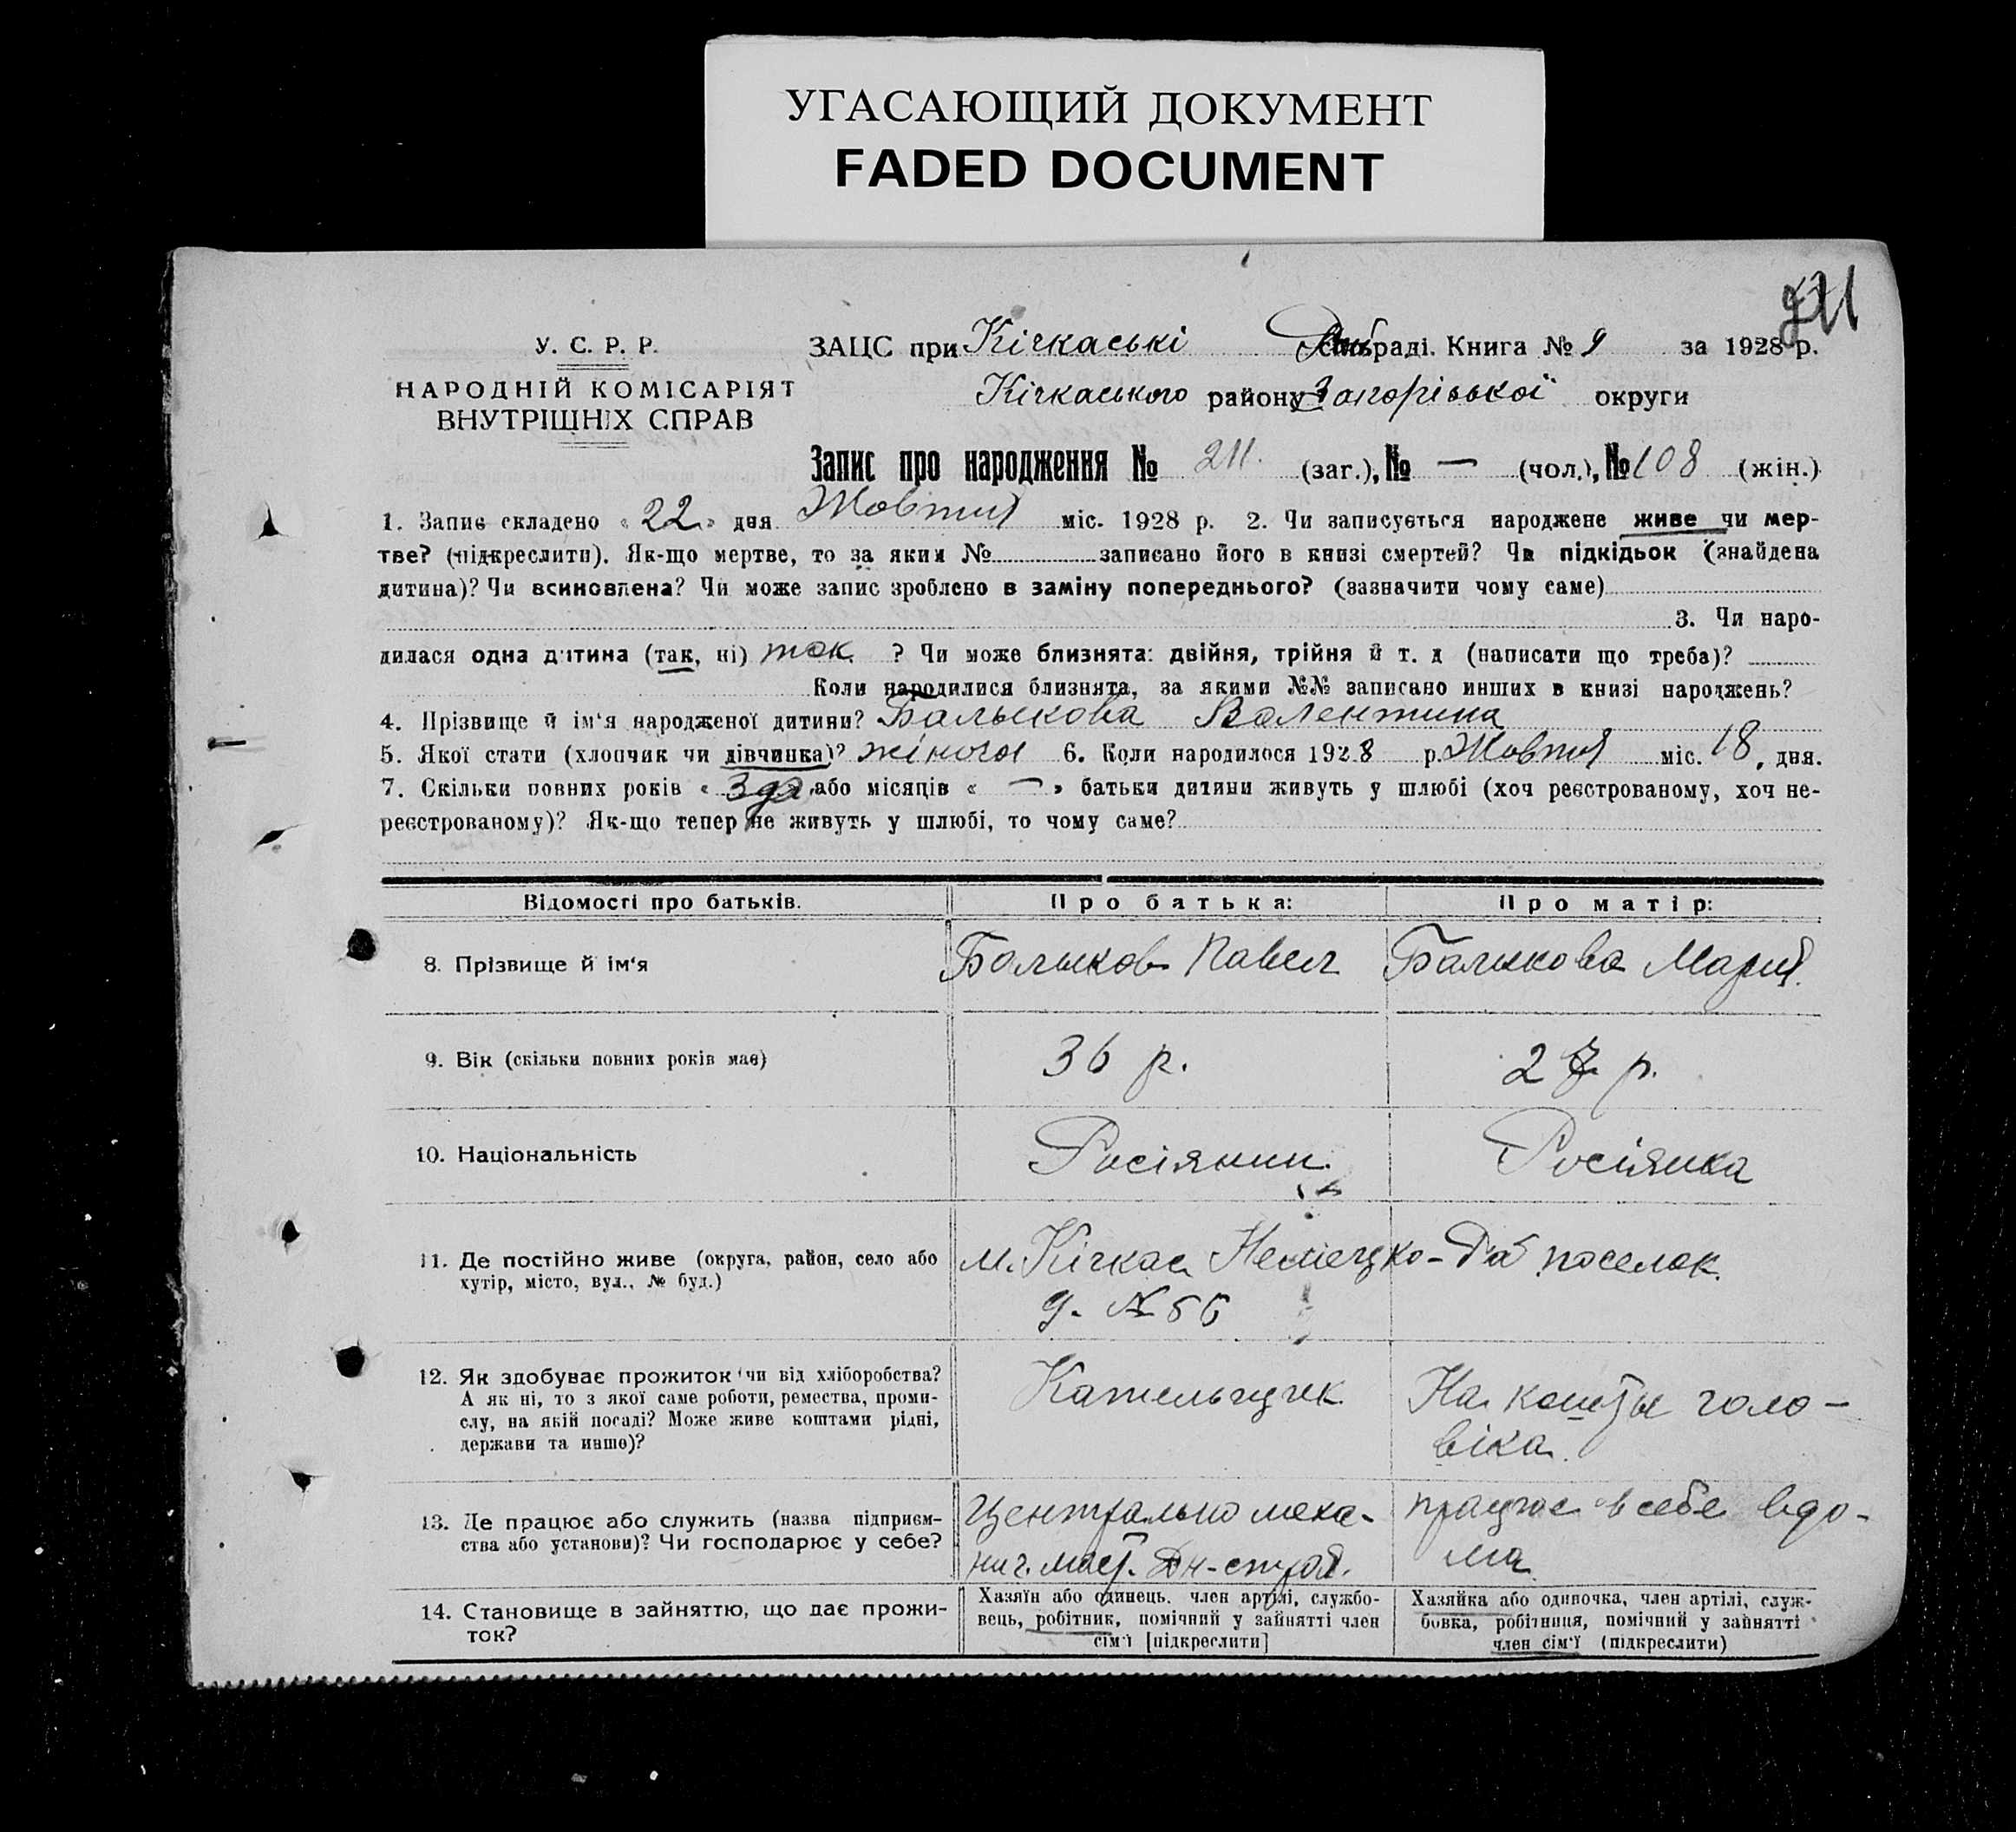 УГАСАЮЩИЙ ДОКУМЕНТ
FADED DOCUMENT
211
У. С. Р. Р.
НАРОДНІЙ КОМІСАРІЯТ
ВНУТРІШНІХ СПРАВ
ЗАЦС при Кічкаські раді. Книга № 9 за 1928 р.
Кічкаського району Запорізької округи
Запис про народження № 211. (заг.), № — (чол.), № 108 (жін.)
1. Запис складено « 22 » дня Жовтня міс. 1928 р. 2. Чи записується народжене живе чи мер-
тве? (підкреслити). Як-що мертве, то за яким № записано його в книзі смертей? Чи підкідьок (знайдена
дитина)? Чи всиновлена? Чи може запис зроблено в заміну попереднього? (зазначити чому саме)
3. Чи наро-
дилася одна дитина (так, ні) так ? Чи може близнята: двійня, трійня й т. д (написати що треба)?
Коли народилися близнята, за якими №№ записано инших в книзі народжень?
4. Прізвище й ім‘я народженої дитини? Балыкова Валентина
5. Якої стати (хлопчик чи дівчинка)? жіноча 6. Коли народилося 1928 р. Жовтня міс. 18, дня.
7. Скільки повних років « 3 » або місяців « — » батьки дитини живуть у шлюбі (хоч реєстрованому, хоч не-
реєстрованому)? Як-що тепер не живуть у шлюбі, то чому саме?
Відомості про батьків. Про батька: Про матір:
8. Прізвище й ім‘я Балыков Павел Балыкова Мария.
9. Вік (скільки повних років має) 36 р. 27 р.
10. Національність Росіянин. Росіянка
11. Де постійно живе (округа, район, село або
хутір, місто, вул., № буд.)
м. Кічкас поселок.
д. № 56
12. Як здобуває прожиток (чи від хліборобства?
А як ні, то з якої саме роботи, ремества, проми-
слу, на якій посаді? Може живе коштами рідні,
держави та инше)?
Кательщик
На кошты чоло-
віка.
13. Де працює або служить (назва підприєм-
ства або установи)? Чи господарює у себе?
Центрально меха-
нич. маст. Дн-строя.
працює в себе вдо-
ма
14. Становище в зайняттю, що дає прожи-
ток?
Хазяїн або одинець, член артілі, службо-
вець, робітник, помічний у зайнятті член
сім‘ї [підкреслити]
Хазяйка або одиночка, член артілі, служ-
бовка, робітниця, помічний у зайнятті
член сім‘ї (підкреслити)